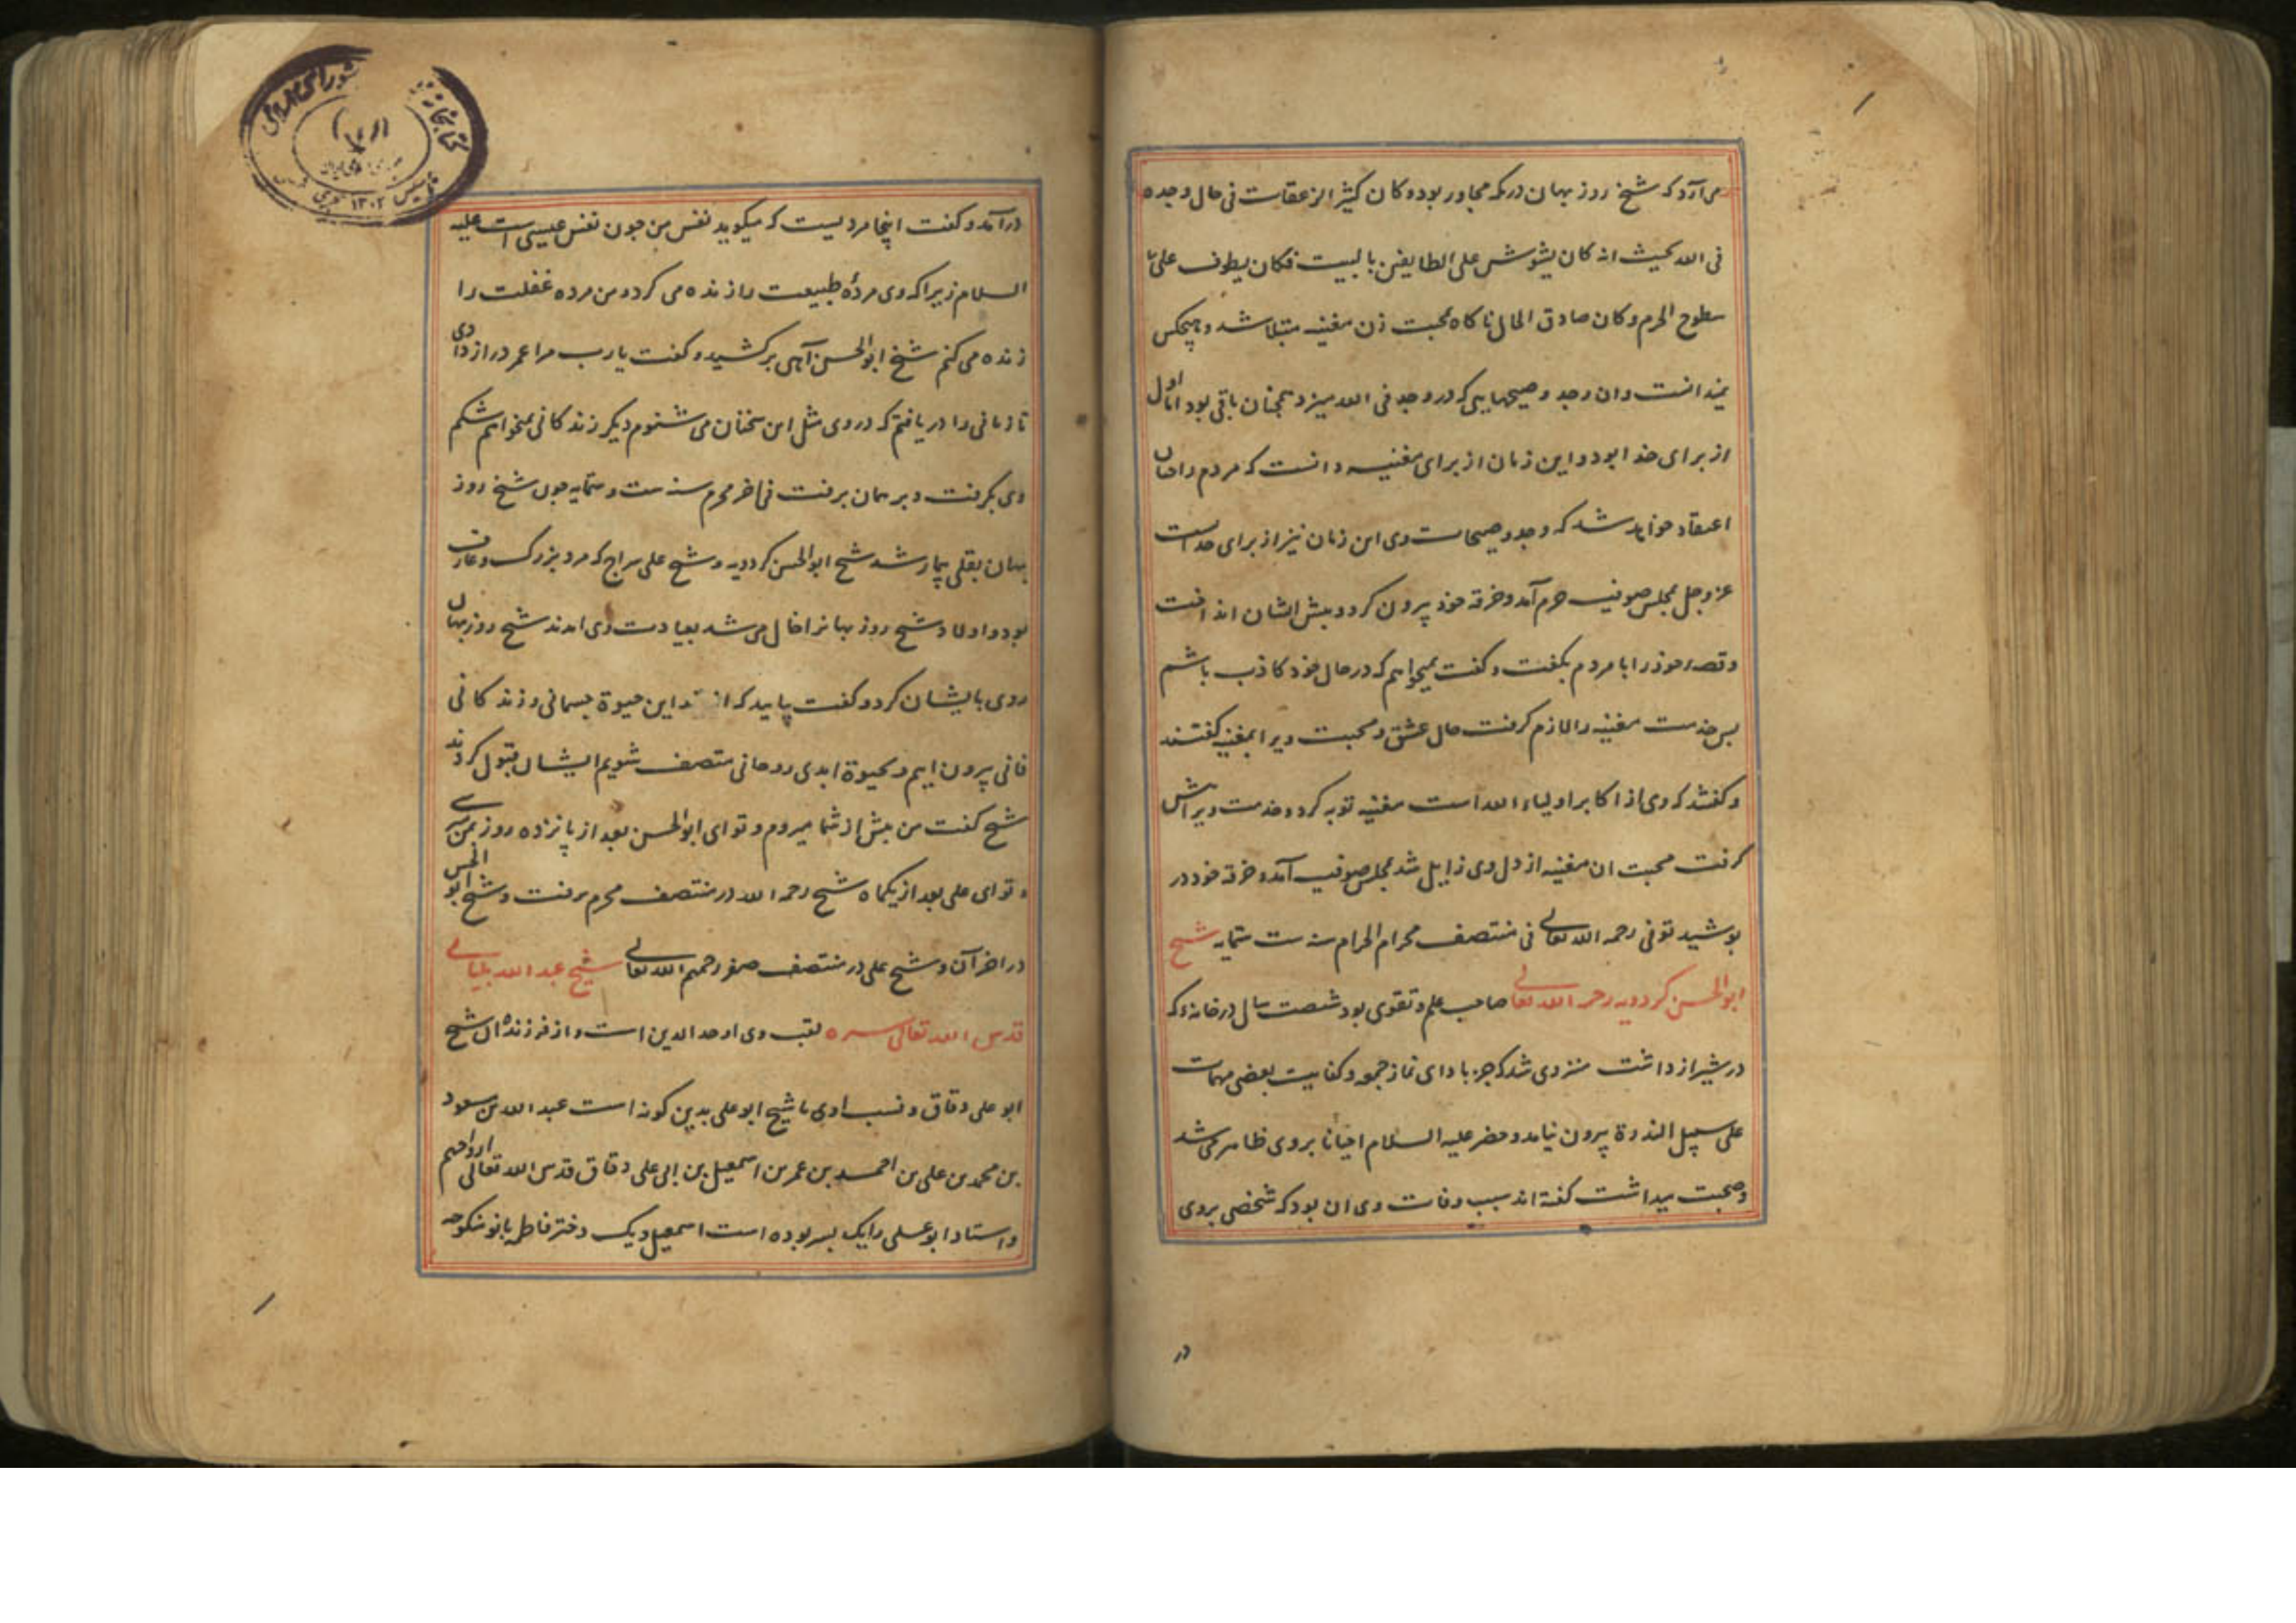 می‌آرد که شیخ روز بهان در مکه مجاور بود وکان کثیر الزعقات فی حال وجده
فی الله بحیث انه کان یشوش علی الطایفین بالبیت فکان یطوف علی
سطوح الحرم وکان صادق الحال ناکاه بمحبت زن مغنیه مبتلا شد و هیچکس
نمیدانست وان وجد و صیحهایی که در وجد فی الله میزد همچنان باقی بود اما اول
از برای خدا بود و این زمان از برای مغنیه دانست که مردم را چنان
اعتقاد خواهد شد که وجد و صیحات وی این زمان نیز از برای خداست
عز وجل بمجلس صوفیه حرم آمد و خرقه خود بیرون کرد و بیش ایشان انداخت
و قصه خود را با مردم بکفت و کفت نمیخواهم که در حال خود کاذب باشم
بس خدمت مغنیه را لازم کرفت حال عشق و محبت ویرا بمغنیه کفتند
و کفتند که وی از اکابر اولیاء الله است مغنیه توبه کرد و خدمت ویرا بیش
کرفت محبت ان مغنیه از دل وی زایل شد بمجلس صوفیه آمد و خرقه خود در
بوشید توفی رحمه الله تعالی فی منتصف محرم الحرام سنه ست ستمایه شیخ
ابوالحسن کردویه رحمه الله تعالی صاحب علم و تقوی بود شصت سال در خانهٔ که
در شیراز داشت منزوی شد که جز با دای نماز جمعه و کفایت بعضی مهمات
علی سبیل الندرة بیرون نیامد و خضر علیه السلام احیانا بروی ظاهر می شد
و صحبت میداشت کفته اند سبب وفات وی ان بود که شخصی بروی
در
درآمد و کفت اینجا مردیست که میکوید نفس من جون نفس عیسی است علیه
السلام زیرا که وی مردهٔ طبیعت را زنده می کرد و من مرده غفلت را
زنده می کنم شیخ ابوالحسن آهی برکشید و کفت یا رب مرا عمر دراز دادی
تا زمانی را دریافتم که در وی مثل این سخنان می شنوم دیکر زندکانی نمیخواهم شکم
وی بکرفت و بر همان برفت فی آخر محرم سنه ست و ستمایه جون شیخ روز
بهان بقلی بیمار شد شیخ ابوالحسن کردویه و شیخ علی سراج که مرد بزرک و عارف
بود و اولاد شیخ روز بهانرا خال می شد بعیادت وی امدند شیخ روز بهان
روی بایشان کرد و کفت بیایید که از این حیوة جسمانی و زندکانی
فانی بیرون اییم و بحیوة ابدی روحانی متصف شویم ایشان قبول کردند
شیخ کفت من بیش از شما میروم و تو ای ابوالحسن بعد از پانزده روز بمن رسی
و تو ای علی بعد از یکماه شیخ رحمه الله در منتصف محرم برفت و شیخ ابو الحسن
در اخر آن و شیخ علی در منتصف صفر رحمهم الله تعالی شیخ عبد الله بلیانی
قدس الله تعالی سره لقب وی اوحد الدین است و از فرزندان شیخ
ابو علی دقاق و نسب اوی با شیخ ابو علی بدین کونه است عبد الله بن مسعود
بن محمد بن علی بن احمد بن عمر بن اسمعیل بن ابی علی دقاق قدس الله تعالی ارواحهم
و استاد ابو علی را یک بسر بوده است اسمعیل و یک دختر فاطمه بانو منکوحه
کتابخانه شورای ملی
تاسیس ۱۳۰۲ هجری